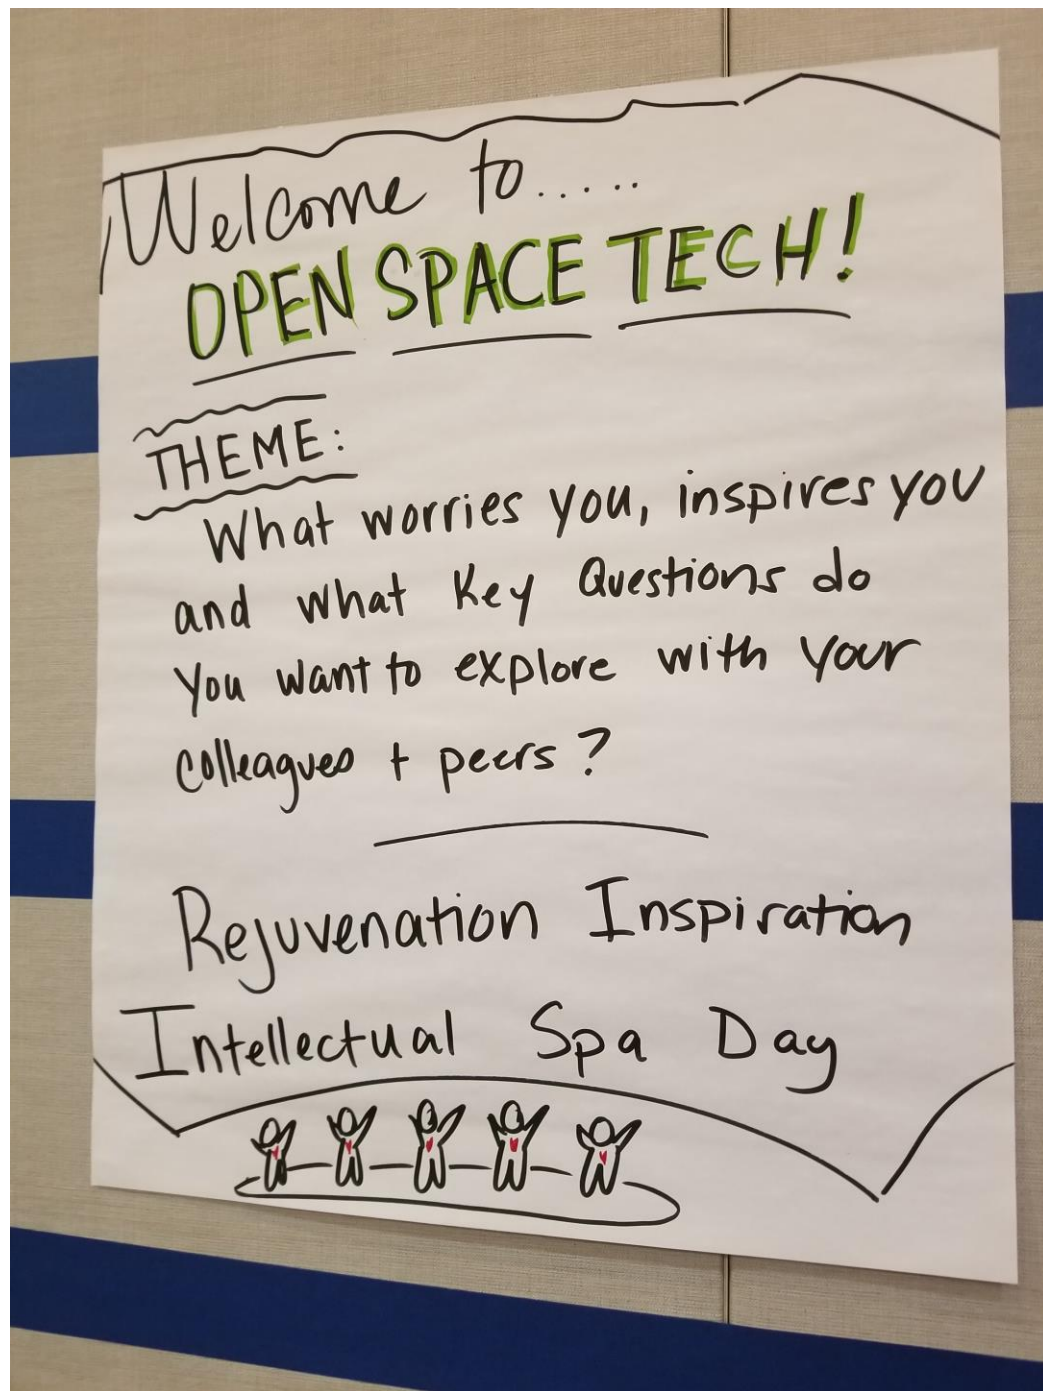 Welcome to.....
OPEN SPACE TECH!
THEME:
What worries you, inspires you
and what Key Questions do
You want to explore with your
colleagues + peers?
Rejuvenation Inspiration
Intellectual Spa Day